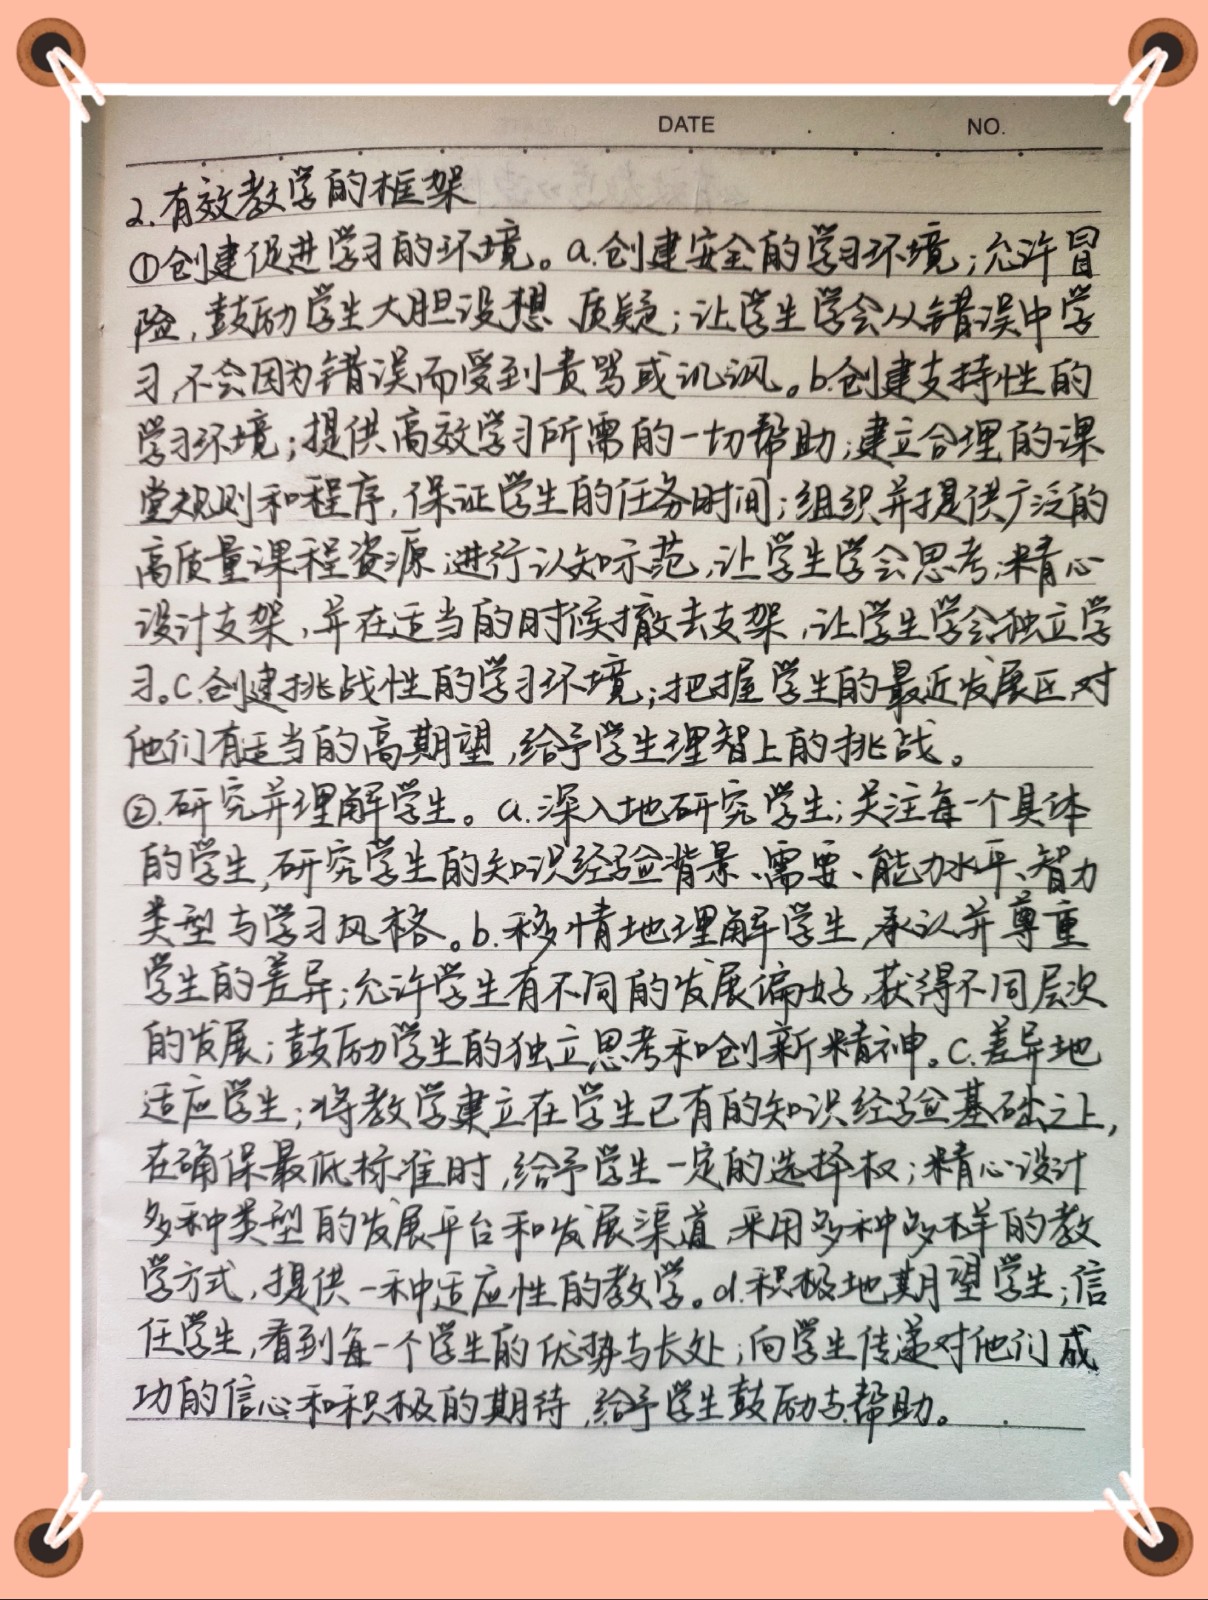 DATE . . NO.
2.有效教学的框架
①创建促进学习的环境。a.创建安全的学习环境;允许冒
险,鼓励学生大胆设想 质疑;让学生学会从错误中学
习,不会因为错误而受到责骂或讥讽。b.创建支持性的
学习环境;提供高效学习所需的一切帮助;建立合理的课
堂规则和程序,保证学生的任务时间;组织并提供广泛的
高质量课程资源;进行认知示范,让学生学会思考,精心
设计支架,并在适当的时候撤去支架,让学生学会独立学
习。C.创建挑战性的学习环境;把握学生的最近发展区,对
他们有适当的高期望,给予学生理智上的挑战。
②.研究并理解学生。a.深入地研究学生;关注每一个具体
的学生,研究学生的知识经验背景、需要、能力水平、智力
类型与学习风格。b.移情地理解学生,承认并尊重
学生的差异;允许学生有不同的发展偏好,获得不同层次
的发展;鼓励学生的独立思考和创新精神。C.差异地
适应学生;将教学建立在学生已有的知识经验基础之上,
在确保最低标准时,给予学生一定的选择权;精心设计
多种类型的发展平台和发展渠道,采用多种多样的教
学方式,提供一种适应性的教学。d.积极地期望学生;信
任学生,看到每一个学生的优势与长处;向学生传递对他们成
功的信心和积极的期待,给予学生鼓励与帮助。